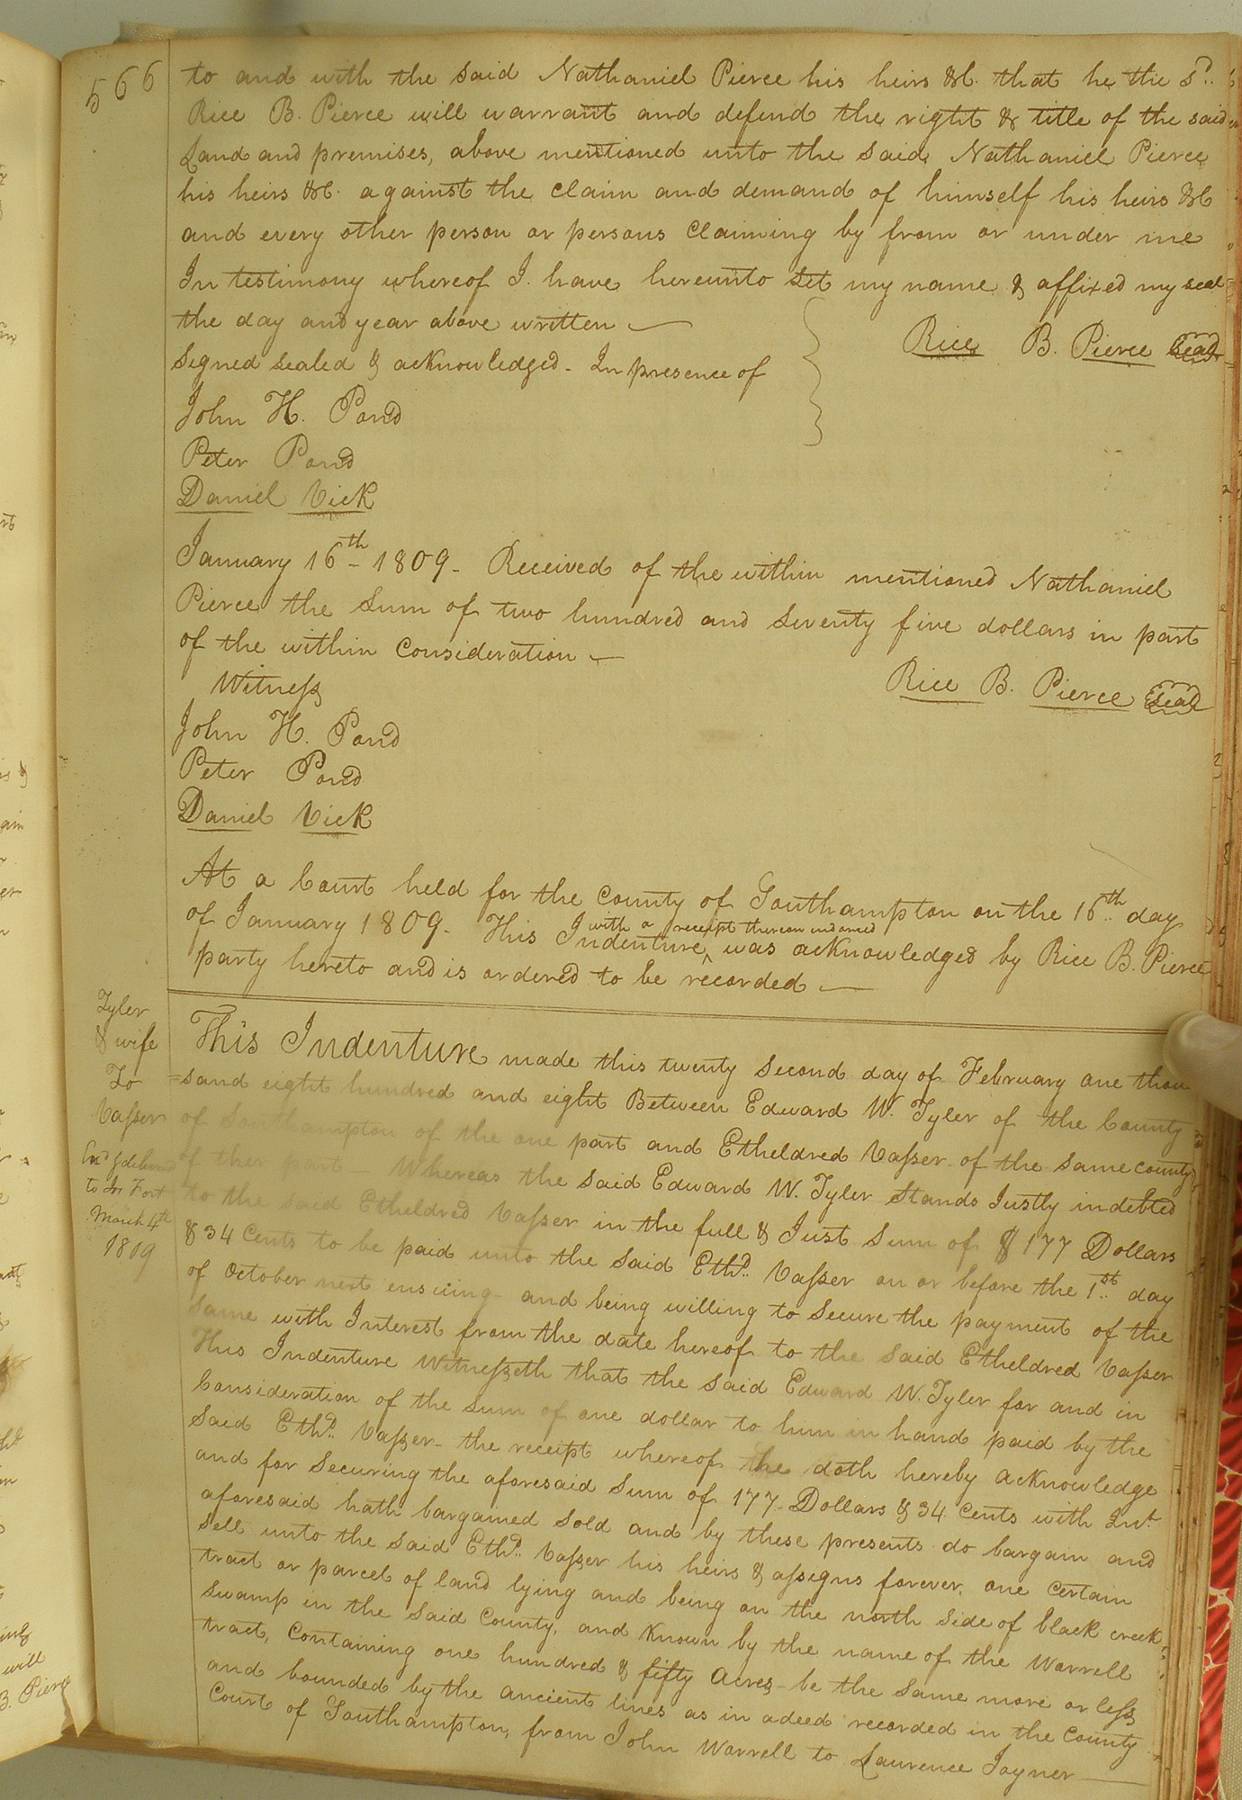 566
to and with the said Nathaniel Pierce his heirs &C. that he the sd..
Rice B. Pierce will warrant and defend the right & title of the said
Land and premises, above mentioned unto the said Nathaniel Pierce
his heirs &C. against the claim and demand of himself his heirs &C
and every other person or persons claiming by from or under me
In testimony whereof I have hereunto set my name & affixed my seal
the day and year above written —
Rice B. Pierce Seal
Signed sealed & acknowledged - In presence of
John H. Pond
Peter Pond
Daniel Vick
January 16th - 1809 - Received of the within mentioned Nathaniel
Pierce the sum of two hundred and seventy five dollars in part
of the within consideration —
Rice B. Pierce Seal
Witness
John H. Pond
Peter Pond
Daniel Vick
At a Court held for the county of Southampton on the 16th.. day
of January 1809 - This Indenture with a receipt thereon indorsed was acknowledged by Rice B. Pierce
party hereto and is ordered to be recorded —
Tyler
& wife
To
Vasser
to
March 4th
1809
This Indenture made this twenty second day of February one thou
=sand eight hundred and eight Between Edward W. Tyler of the County
of Southampton of the one part and Etheldred Vasser of the same county
of ther part - Whereas the said Edward W. Tyler stands Justly indebted
to the said Etheldred Vasser in the full & Just sum of $177 Dollars
& 34 Cents to be paid unto the said Ethd.. Vasser on or before the 1st.. day
of October next ensuing - and being willing to secure the payment of the
same with Interest from the date hereof to the said Etheldred Vasser
This Indenture Witnesseth that the said Edward W. Tyler for and in
Consideration of the sum of one dollar to him in hand paid by the
said Ethd.. Vasser - the receipt whereof he doth hereby acknowledge
and for securing the aforesaid sum of 177 Dollars & 34 Cents with Int.
aforesaid hath bargained sold and by these presents do bargain and
sell unto the said Ethd.. Vasser his heirs & assigns forever, one certain
tract or parcel of land lying and being on the north side of black creek
swamp in the said County, and known by the name of the Warrell
tract, containing one hundred & fifty Acres - be the same more or less
and bounded by the ancient lines as in a deed recorded in the County
Court of Southampton, from John Warrell to Laurence Joyner —